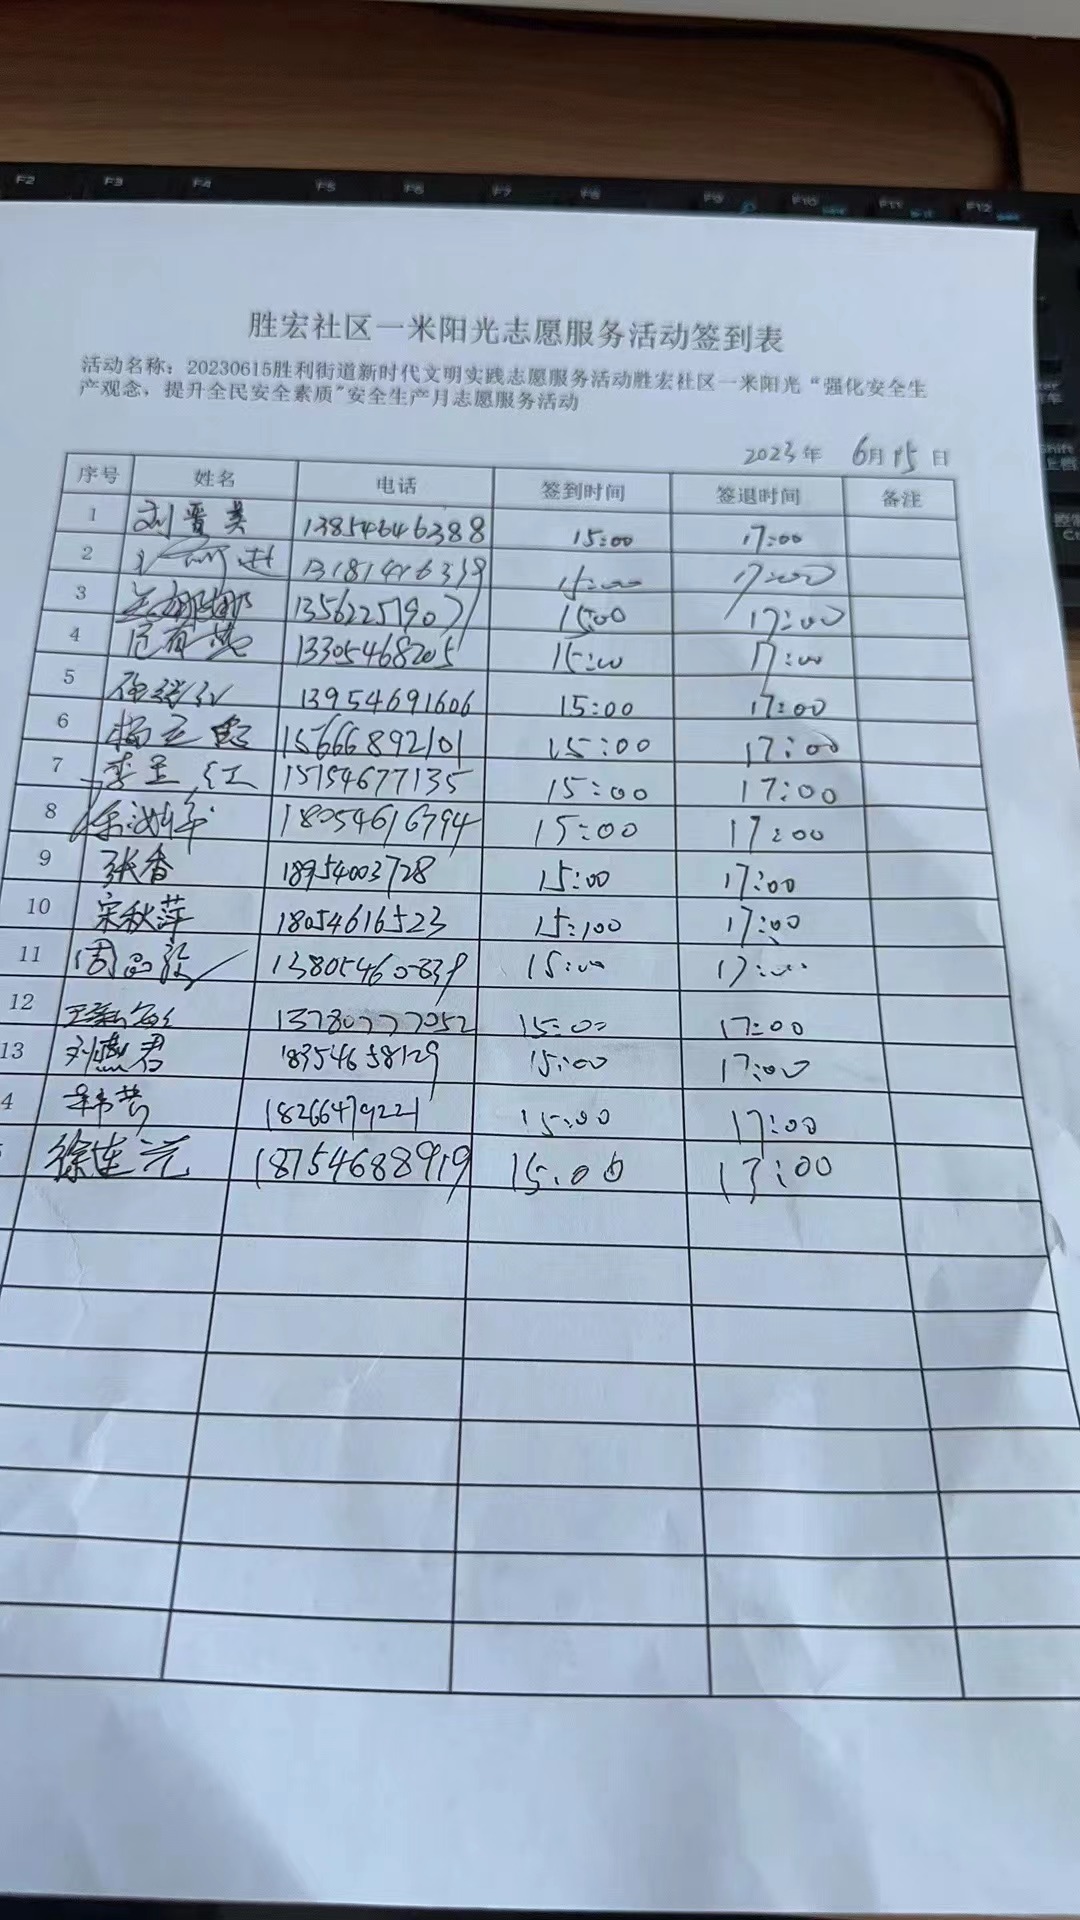 F2 F3 F4 F5 F6 F7 F8 F9 F10 F11 F12
胜宏社区一米阳光志愿服务活动签到表
活动名称：20230615胜利街道新时代文明实践志愿服务活动胜宏社区一米阳光“强化安全生
产观念，提升全民安全素质”安全生产月志愿服务活动
2023年 6月15日
序号 姓名 电话 签到时间 签退时间 备注
1 刘晋美 13854646388 15:00 17:00
2 15:00 17:00
3 娜娜 13562257907 15:00 17:00
4 13305468205 15:00 17:00
5 13954691606 15:00 17:00
6 杨立 15666892101 15:00 17:00
7 李呈红 15154677135 15:00 17:00
8 徐 18054616794 15:00 17:00
9 张香 18954003728 15:00 17:00
10 宋秋萍 18054616523 15:00 17:00
11 周 13805460839 15:00 17:00
12 王 13780777052 15:00 17:00
13 刘燕君 18354658129 15:00 17:00
4 韩 18266479221 15:00 17:00
徐连元 18754688919 15:00 17:00